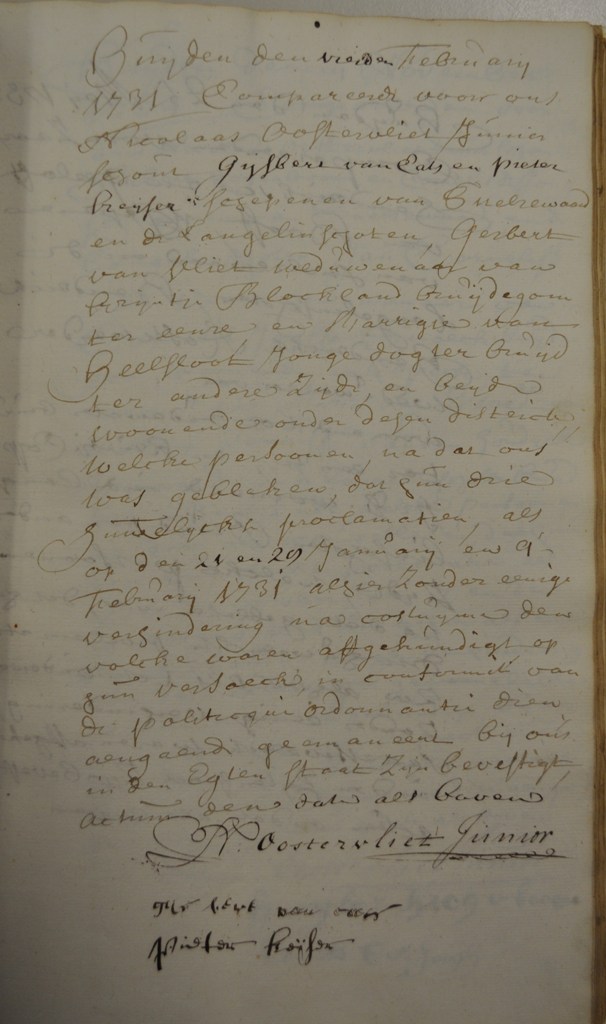 Huyden den vierden Februarij
1731 Compareerde voor ons
Nicolaas Oostervliet Junior
schout Gijsbert van Eals en Pieter
keyser schepenen van Snelrewaard
en de Langelinschoten, Gerbert
van Vliet weduwenaar van
krijntje Blockland bruijdegom
ter eenre en Marrigie van
Heelsloot Jonge dogter bruijd
ter andere Zijde, en beijde
woonende onder desen districk
welcke persoonen, na dat ons
was gebleken, dat hun drie
huwelijckse proclamatien, als
op den 21 en 29 Januarij en
Februarij 1731 alhier Zonder eenige
verhindering na costuyme den
volcke waren affgekundigt, op
hun versoeck, in conformité van
de politicque ordonnantie dien
aengaende geemaneert bij ons
in den Egten staat Zijn bevestigt,
actum den date als boven
N. Oostervliet Junior
gijsbert van
Pieter keijser